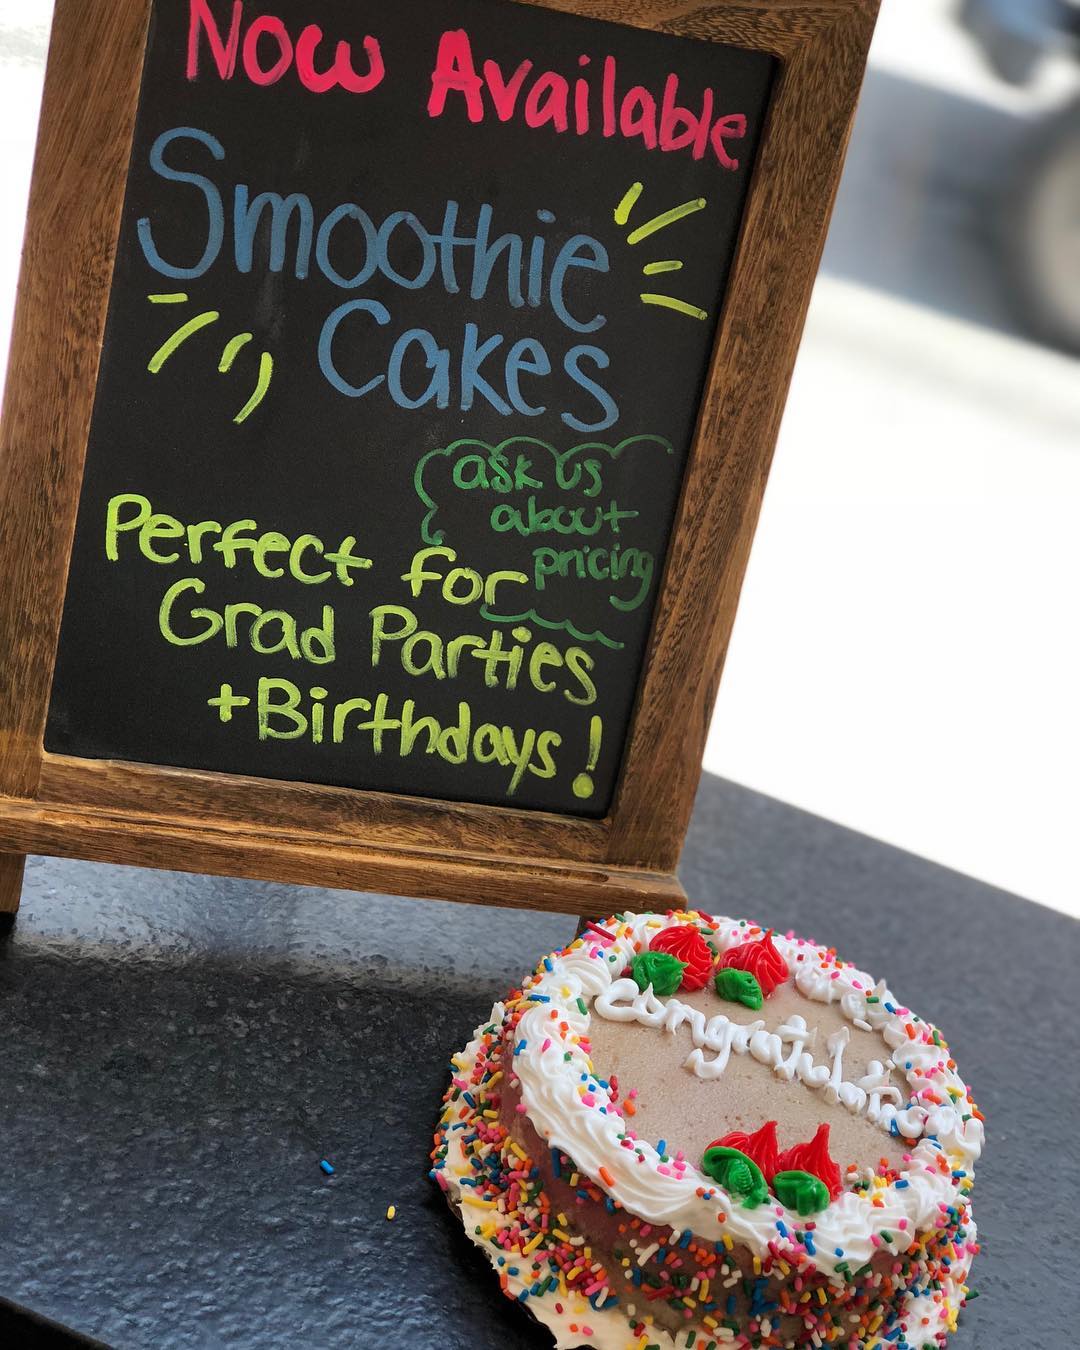 Now Available
Smoothie
Cakes
ask us
about
pricing
Perfect for
Grad Parties
+Birthdays!